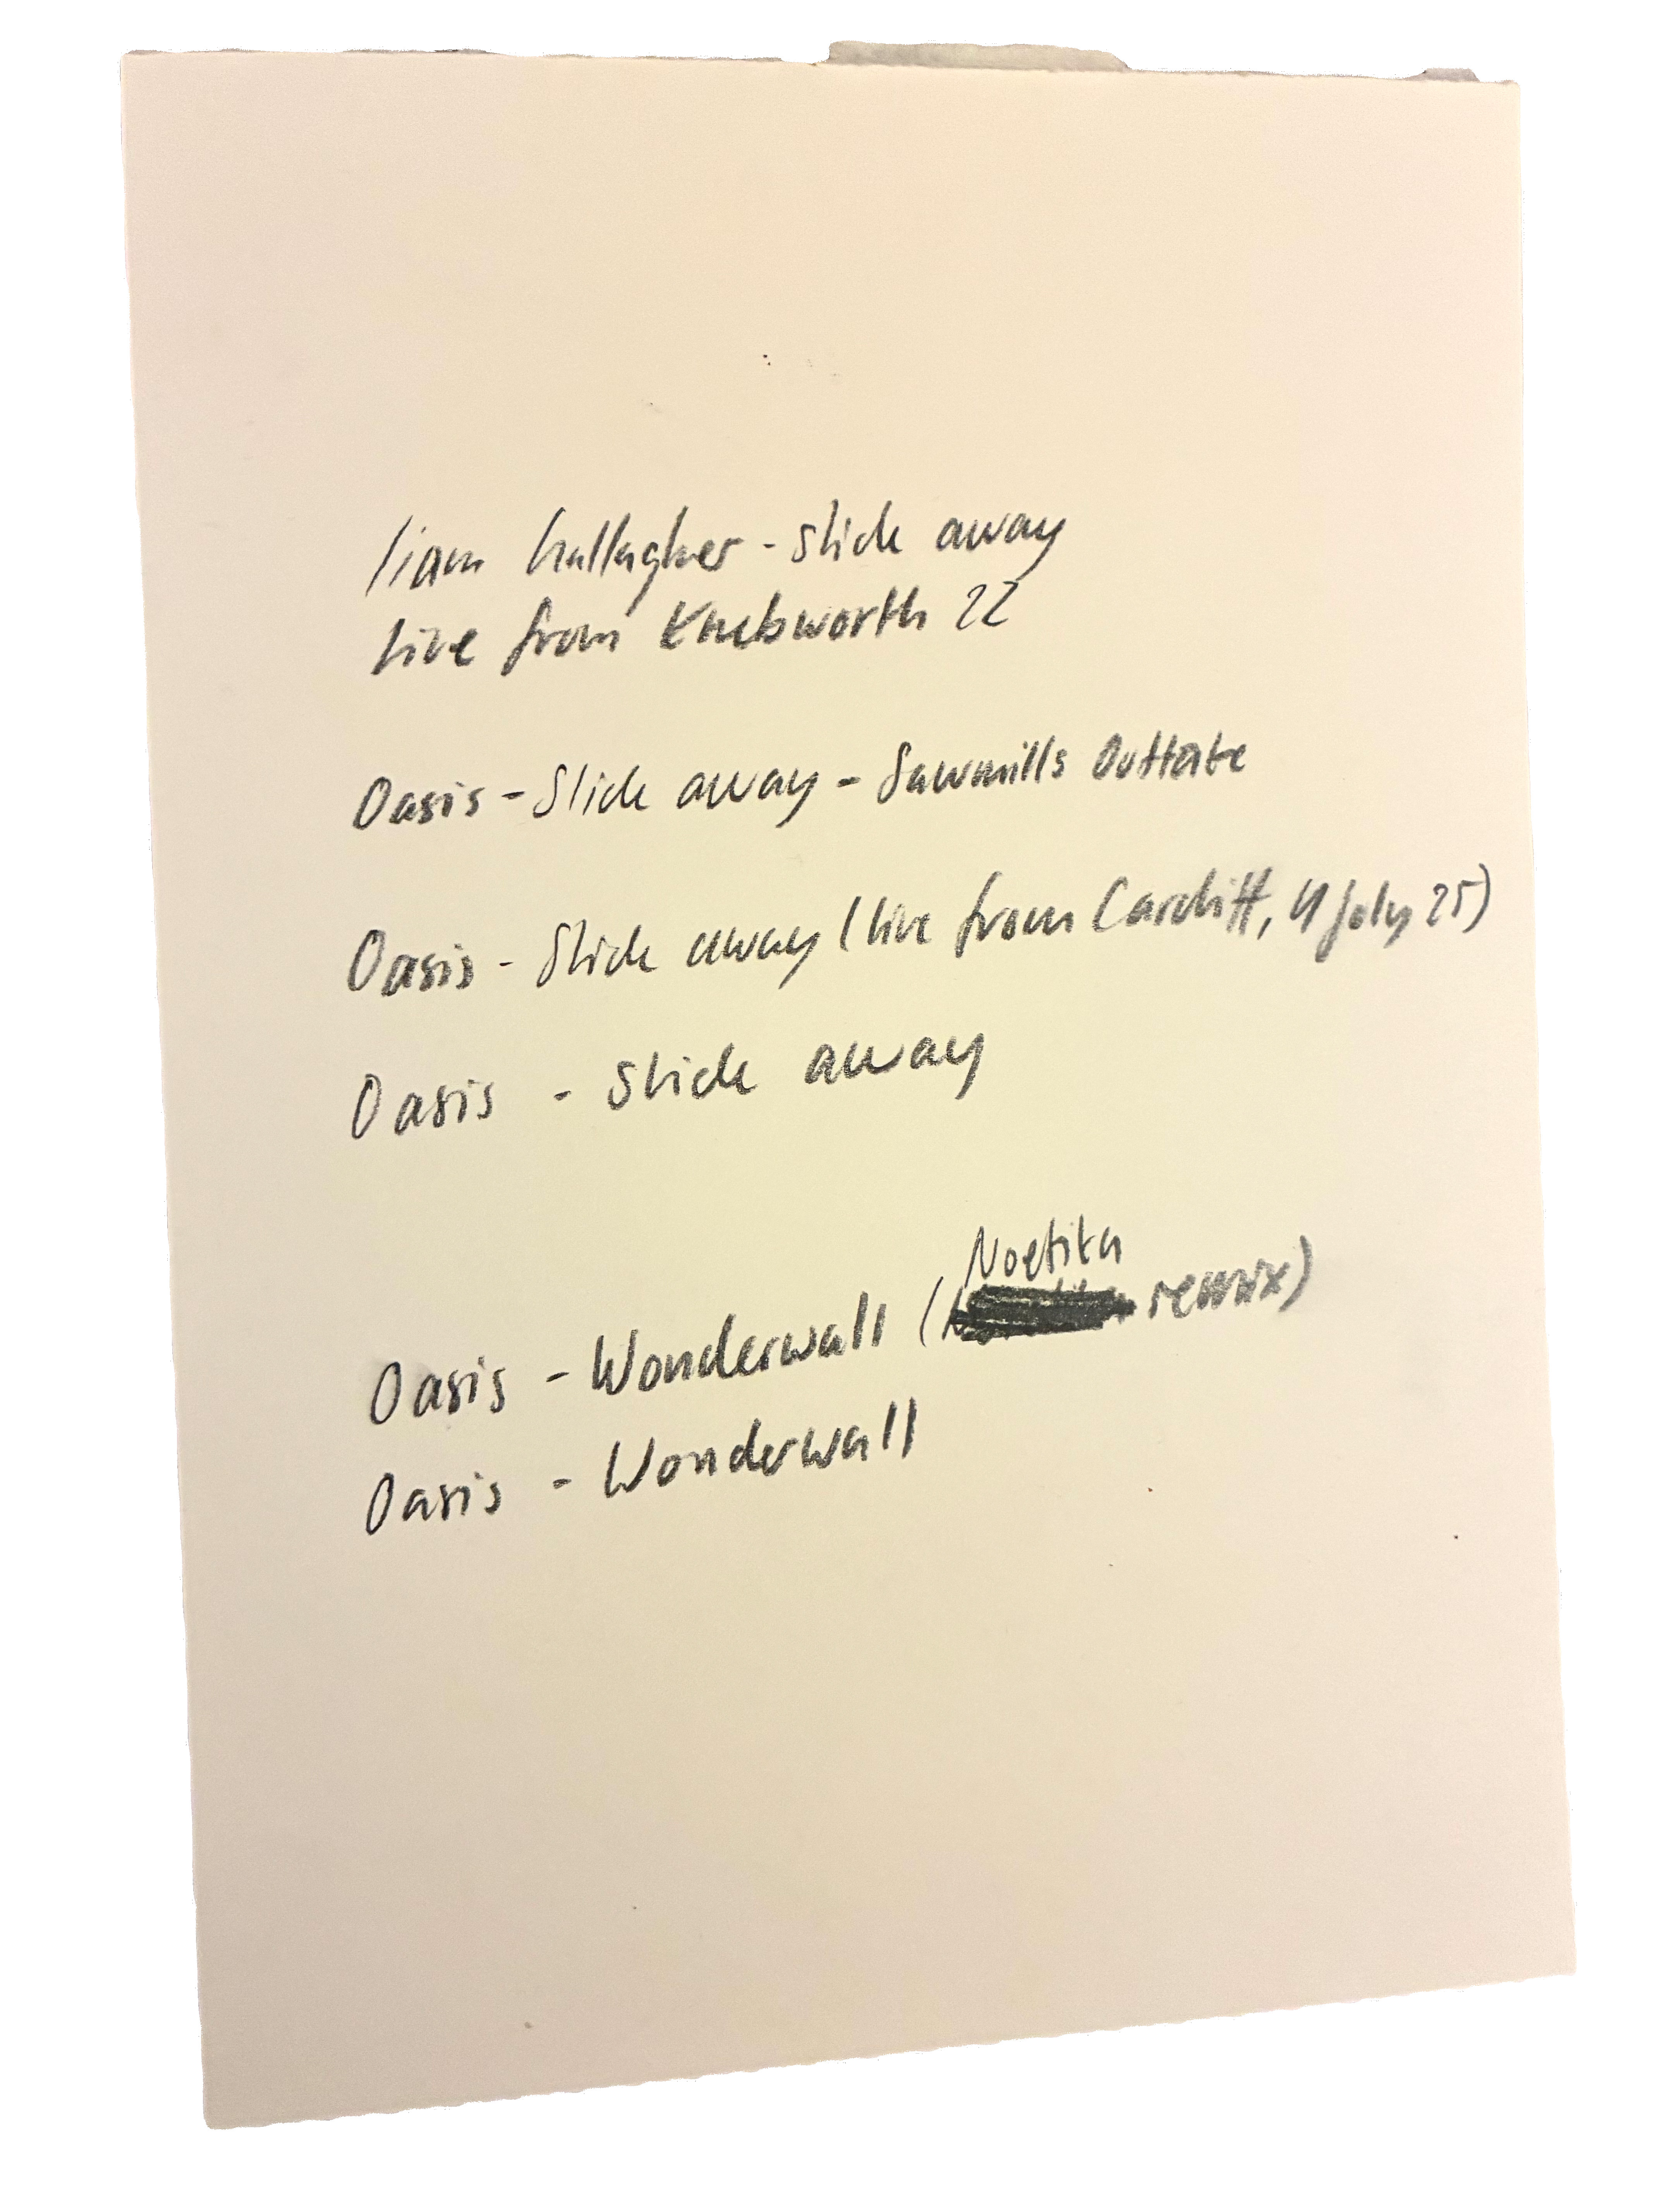 liam Gallagher - slide away
Live from Knebworth 22
Oasis - Slide away - Sawmills Outtake
Oasis - Slide away (live from Cardiff, 4 July 25)
Oasis - Slide away
Noetika
Oasis - Wonderwall ( remix)
Oasis - Wonderwall